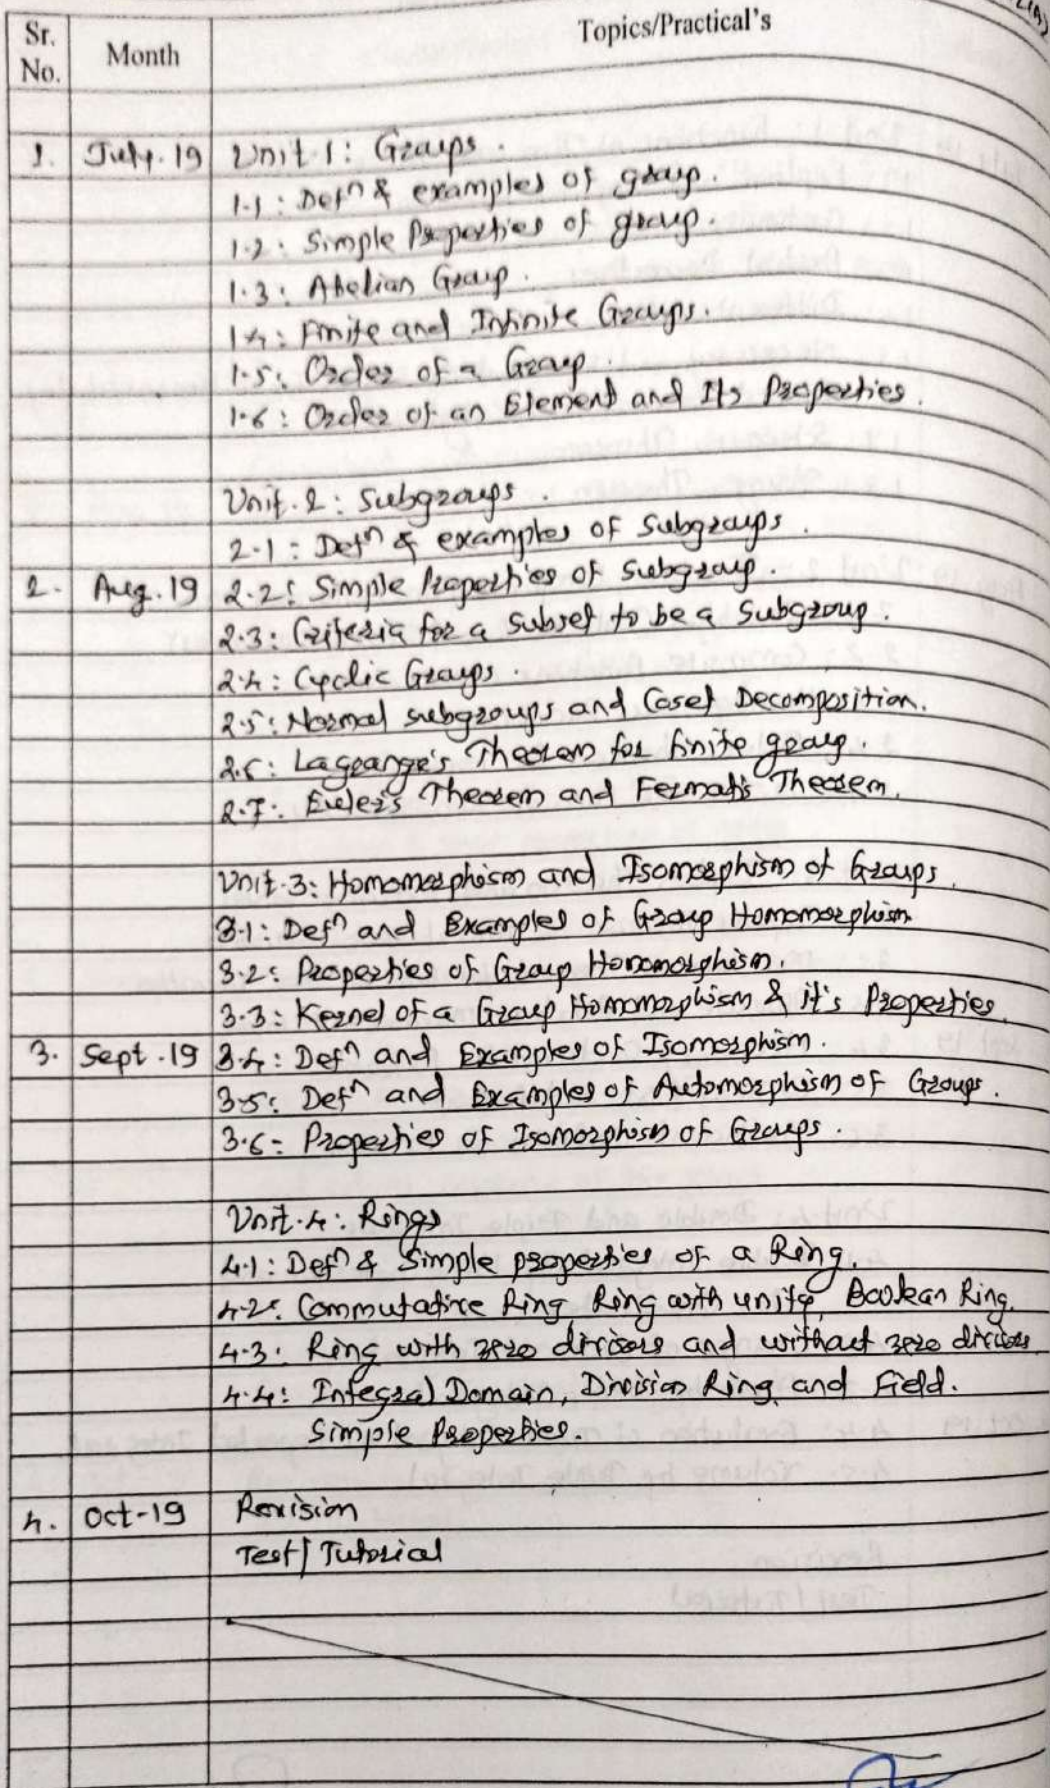 Sr. No. Month Topics/Practical's
1. July. 19 Unit 1: Groups.
1.1: Defⁿ & examples of group.
1.2: Simple Properties of group.
1.3: Abelian Group.
1.4: Finite and Infinite Groups.
1.5: Order of a Group.
1.6: Order of an Element and Its Properties.
Unit. 2: Subgroups.
2.1: Defⁿ & examples of Subgroups.
2. Aug. 19 2.2: Simple Properties of Subgroup.
2.3: Criteria for a Subset to be a Subgroup.
2.4: Cyclic Groups.
2.5: Normal subgroups and Coset Decomposition.
2.6: Lagrange's Theorem for finite group.
2.7: Euler's Theorem and Fermat's Theorem.
Unit. 3: Homomorphism and Isomorphism of Groups.
3.1: Defⁿ and Examples of Group Homomorphism
3.2: Properties of Group Homomorphism.
3.3: Kernel of a Group Homomorphism & it's Properties.
3. Sept. 19 3.4: Defⁿ and Examples of Isomorphism.
3.5: Defⁿ and Examples of Automorphism of Groups.
3.6: Properties of Isomorphism of Groups.
Unit. 4: Rings
4.1: Defⁿ & Simple properties of a Ring.
4.2: Commutative Ring, Ring with unity, Boolean Ring.
4.3: Ring with zero divisors and without zero divisors
4.4: Integral Domain, Division Ring and Field.
Simple Properties.
4. Oct-19 Revision
Test/Tutorial